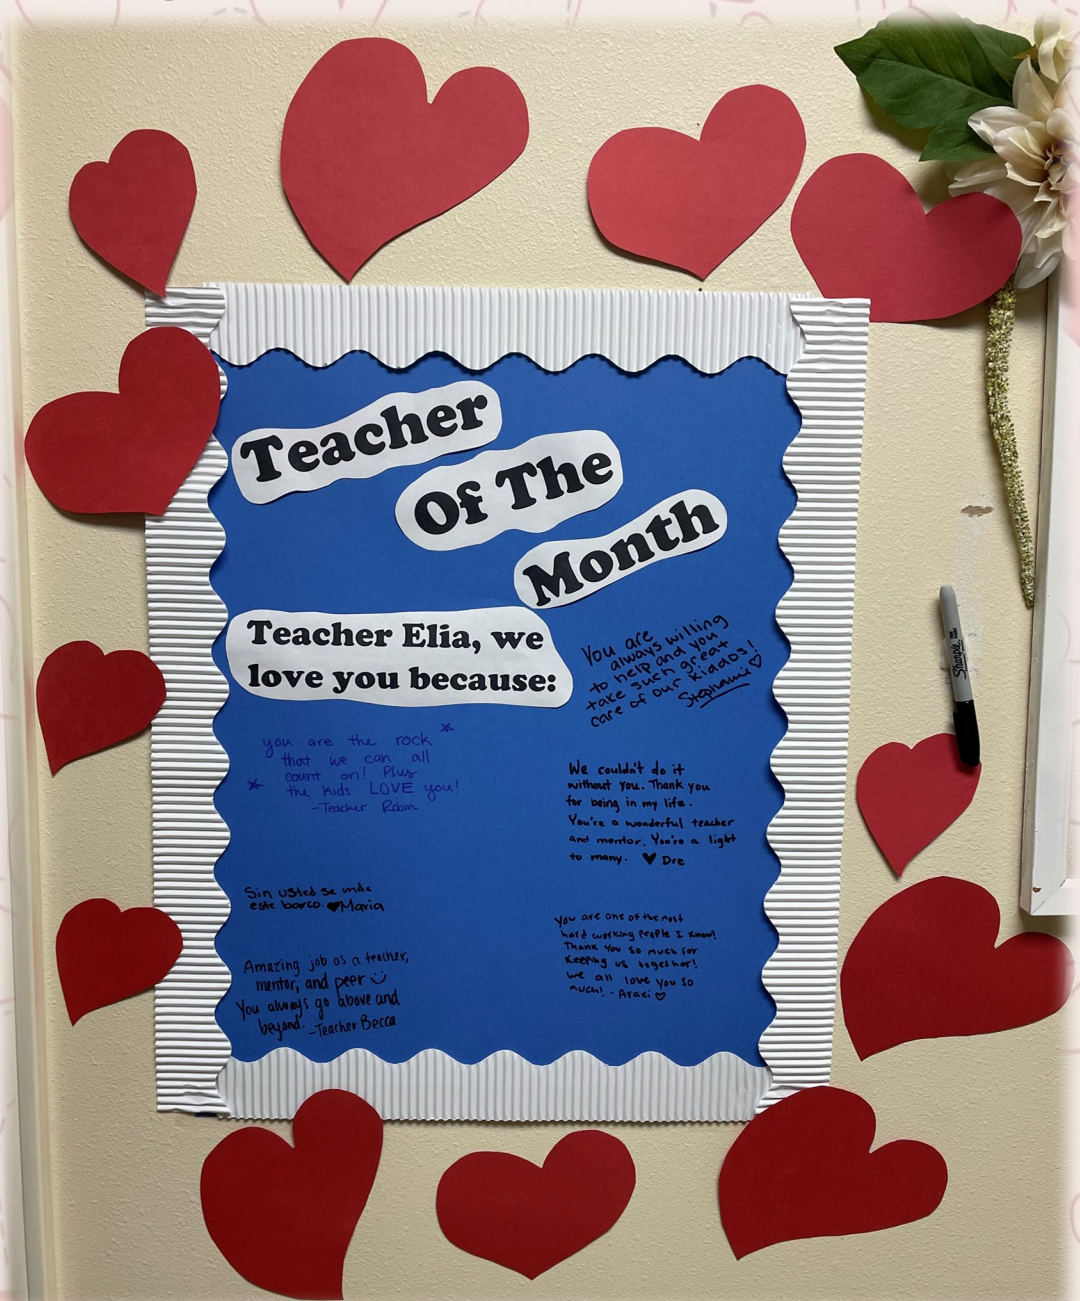 Teacher
Of The
Month
Teacher Elia, we
love you because:
You are
always willing
to help and you
take such great
care of our kiddos!
Stephanie
you are the rock
that we can all
count on! Plus
the kids LOVE you!
-Teacher Robin
We couldn't do it
without you. Thank you
for being in my life.
You're a wonderful teacher
and mentor. You're a light
to many. ♥ Dre
Sin usted se unde
este barco. ♥Maria
You are one of the most
hard working people I know!
Thank you so much for
keeping us together!
We all love you so
much! - Araxi ♡
Amazing job as a teacher,
mentor, and peer ☺
You always go above and
beyond. -Teacher Becca
Sharpie